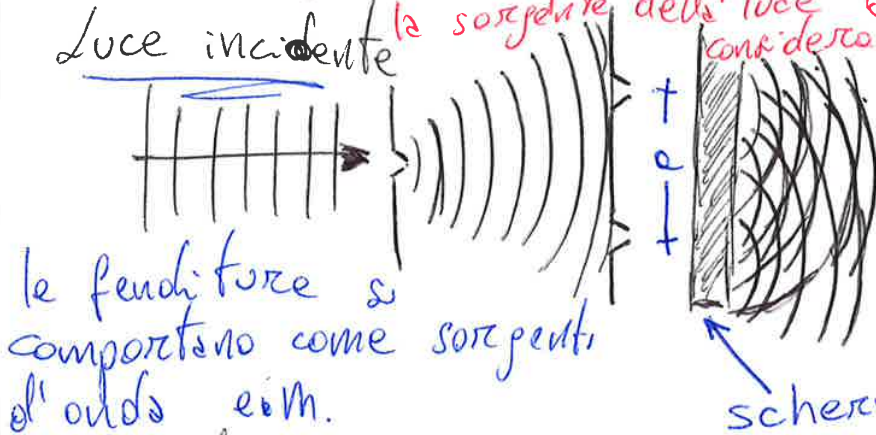 Luce incidente
la sorgente della luce
considera
a
le fenditure si
comportano come sorgenti
d'onda e.m.
scher